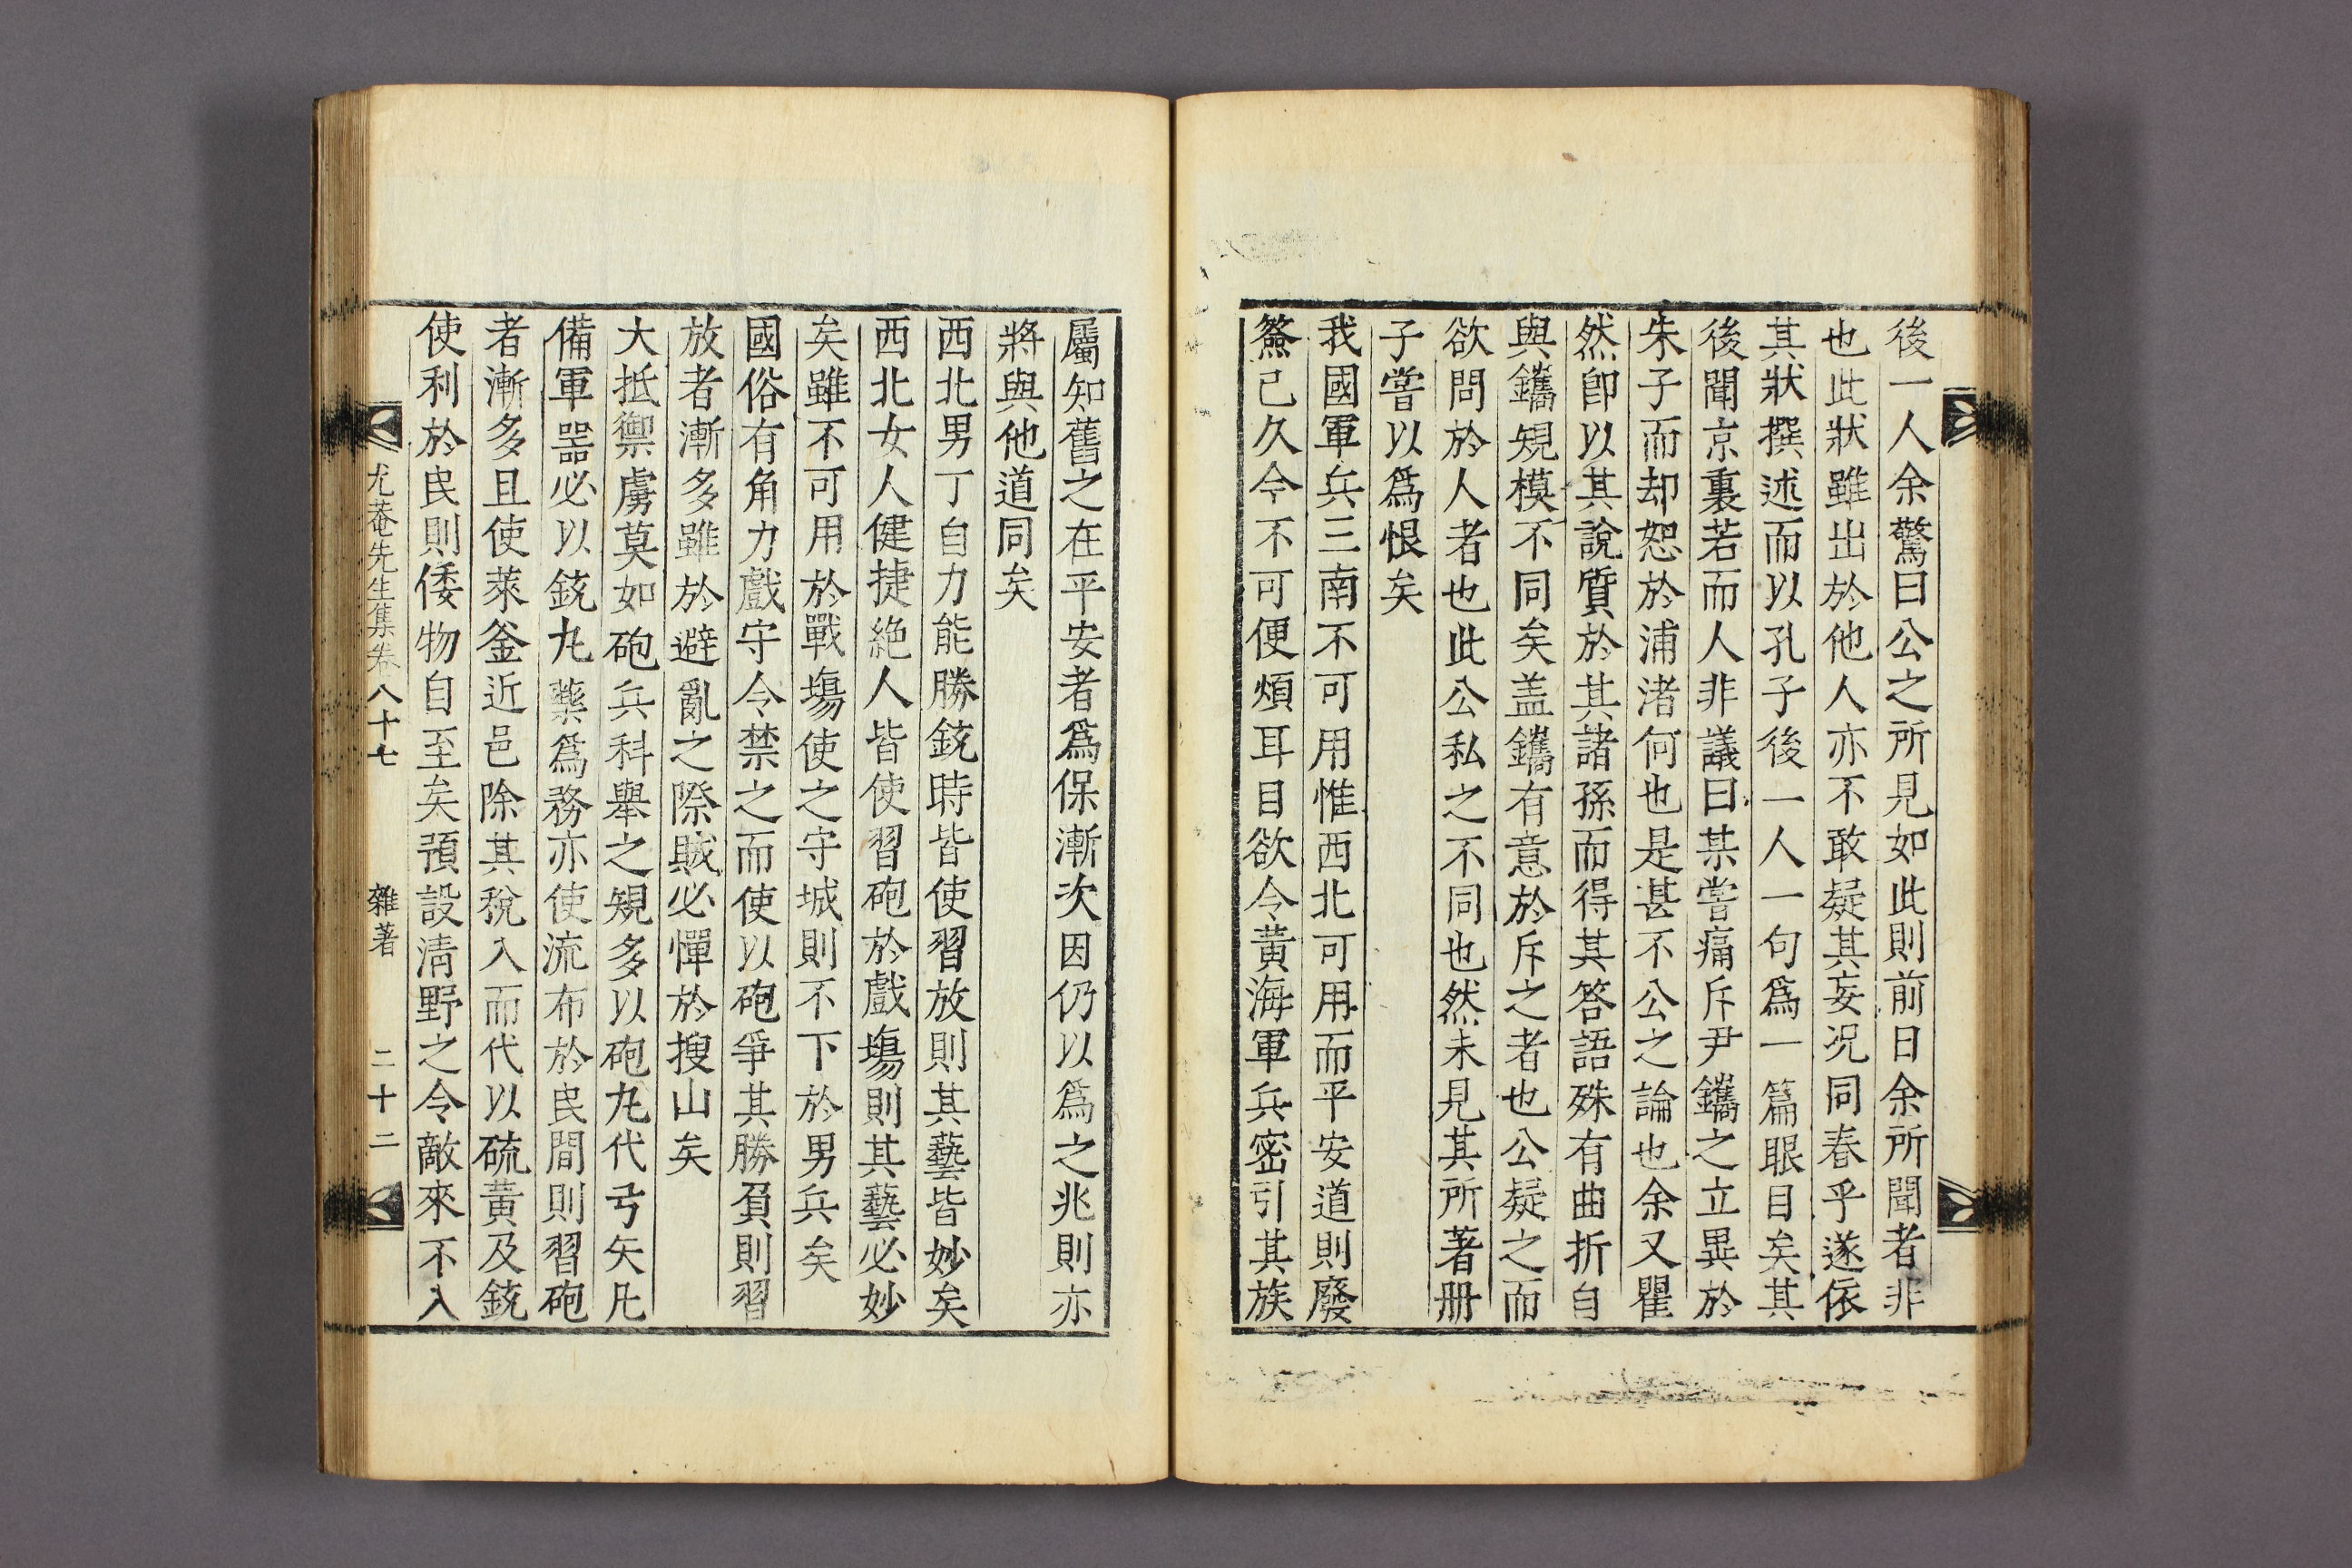 後一人余驚曰公之所見如此則前日余所聞者非
也此狀雖出於他人亦不敢疑其妄况同春乎遂依
其狀撰述而以孔子後一人一句爲一篇眼目矣其
後聞京裏若而人非議曰某嘗痛斥尹鑴之立異於
朱子而却恕於浦渚何也是甚不公之論也余又瞿
然卽以其說質於其諸孫而得其答語殊有曲折自
與鑴䂓模不同矣盖鑴有意於斥之者也公疑之而
欲問於人者也此公私之不同也然未見其所著册
子嘗以爲恨矣
我國軍兵三南不可用惟西北可用而平安道則廢
簽已久今不可便煩耳目欲令黃海軍兵密引其族
屬知舊之在平安者爲保漸次因仍以爲之兆則亦
將與他道同矣
西北男丁自力能勝銃時皆使習放則其藝皆妙矣
西北女人健捷絶人皆使習砲於戲塲則其藝必妙
矣雖不可用於戰塲使之守城則不下於男兵矣
國俗有角力戲守令禁之而使以砲爭其勝負則習
放者漸多雖於避亂之際賊必憚於搜山矣
大抵禦虜莫如砲兵科擧之䂓多以砲丸代弓矢凡
備軍器必以銃丸藥爲務亦使流布於民間則習砲
者漸多且使萊釜近邑除其稅入而代以硫黃及銃
使利於民則倭物自至矣預設淸野之令敵來不入
尤菴先生集卷八十七 雜著 二十二